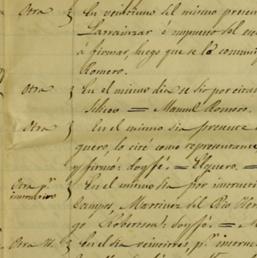 Otra } En veintiuno del mismo presen
Larrainzar é impuesto del
á firmar, luego que se lo comuni
Romero.
Otra } En el mismo dia se dió por
= Manuel Romero.
Otra } En el mismo dia presente
quero, lo cité como representante
y firmó: doy fé. = Elguero. =
Otra pr. instructivo } En el mismo dia por instructi
Campos, Martinez del Rio Her
go Robertson: doy fé. = M
Otra id. } En el dia veintitres, pr. instruc